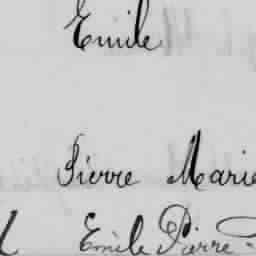 Emile
Pierre Marie
Emile Pierre